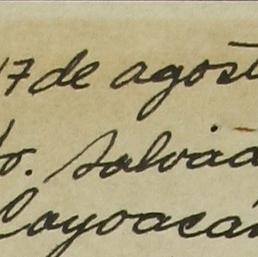 17 de agost
o. Salvad
Coyoacán